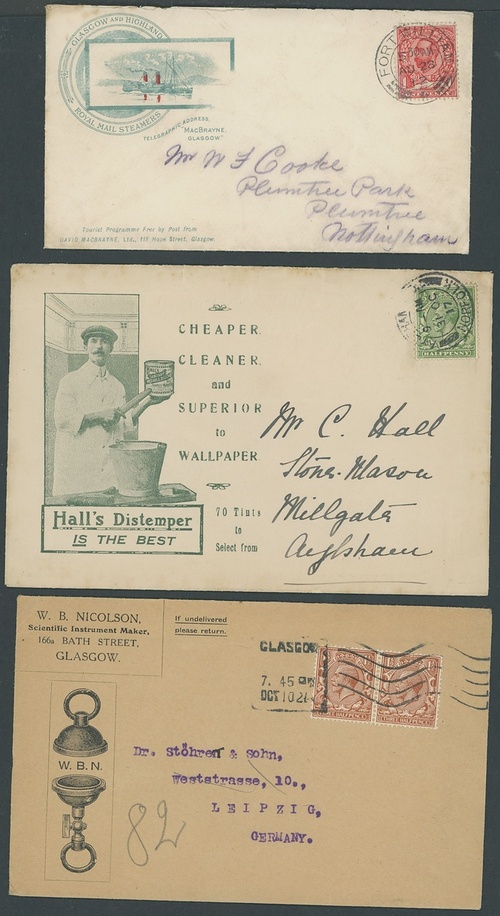 GLASGOW AND HIGHLAND
ROYAL MAIL STEAMERS
TELEGRAPHIC ADDRESS,
"MACBRAYNE,
GLASGOW."
FORT WILLIAM
ONE PENNY
Mr W F Cooke
Plumtree Park
Plumtree
Nottingham
Tourist Programme Free by Post from
DAVID MACBRAYNE, LTD., 119 Hope Street, Glasgow
CHEAPER.
CLEANER.
and
SUPERIOR
to
WALLPAPER.
70 Tints
to
Select from
Hall's Distemper
IS THE BEST
HALFPENNY
NORFOLK
Mr C. Hall
Stone-Mason
Millgate
Aylsham
W. B. NICOLSON,
Scientific Instrument Maker,
166a BATH STREET,
GLASGOW.
If undelivered
please return.
W.B.N.
GLASGOW
7. 45 PM
OCT 10 21
THREE HALFPENCE
THREE HALFPENCE
Dr. Stöhren & Sohn,
Weststrasse, 10.,
LEIPZIG,
GERMANY.
82